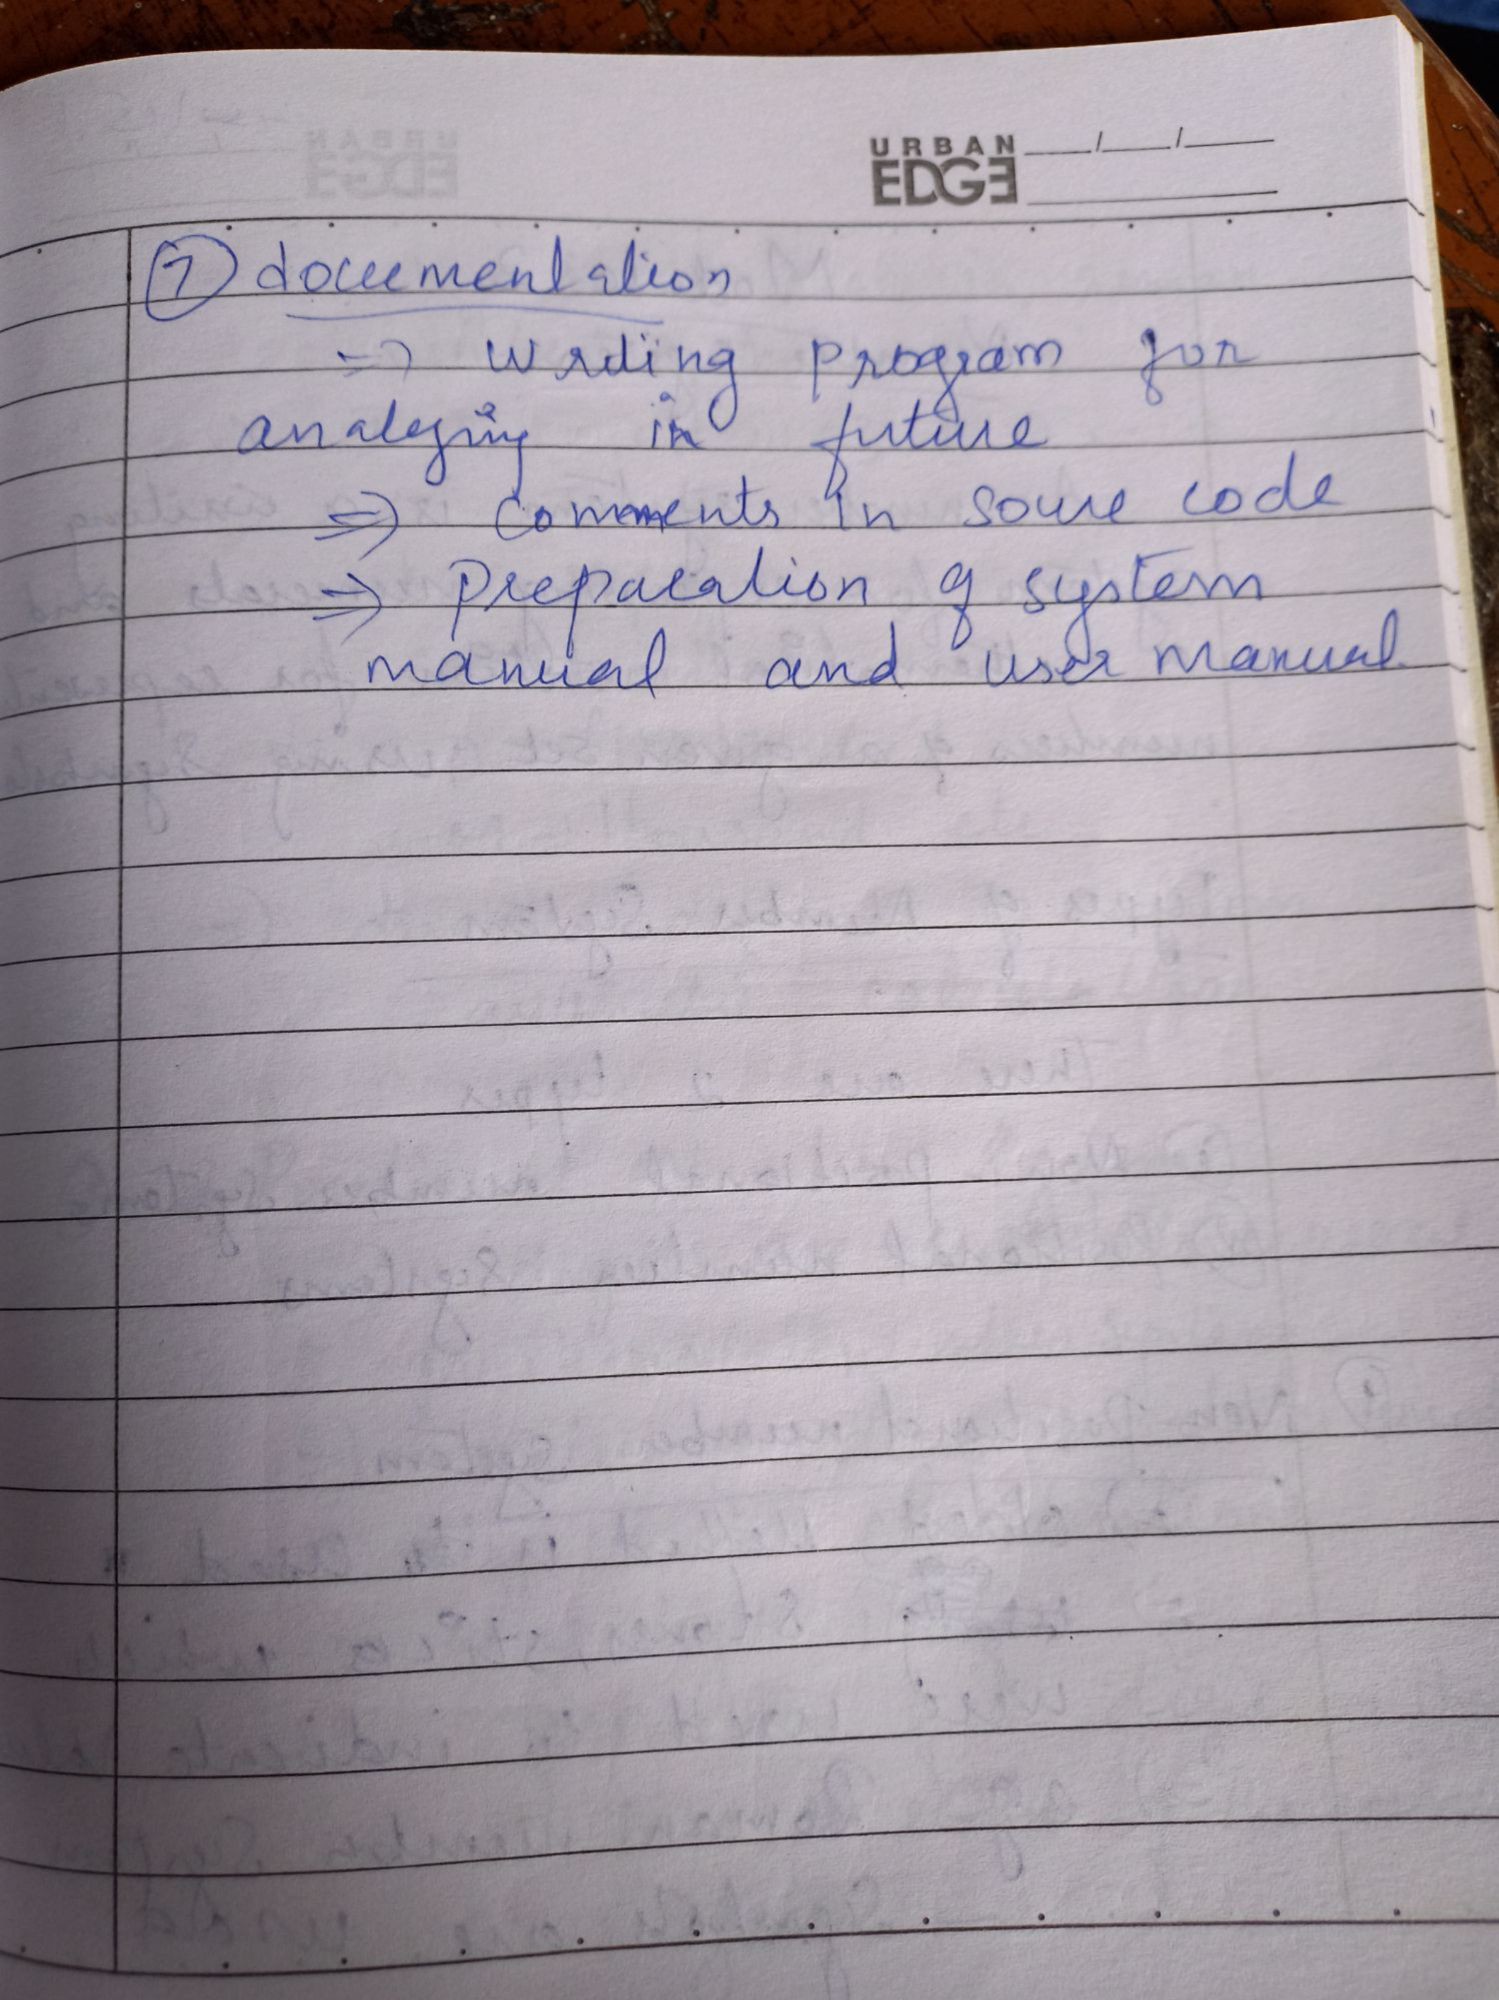 URBAN
EDGE
⑦ documentation
=> Writing program for
analysing in future
=> comments in soure code
=> Preparation of system
manual and user manual